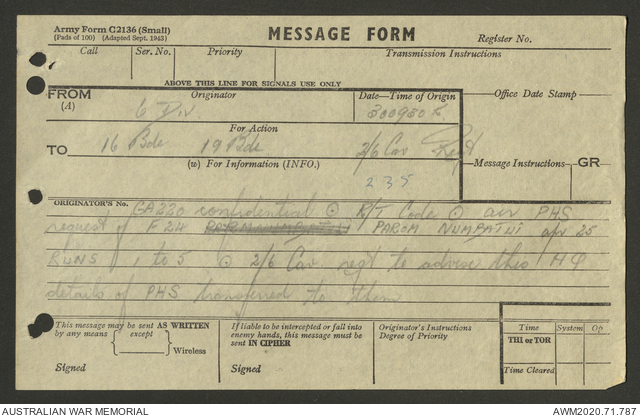 Army Form C2136 (Small)
(Pads of 100) (Adapted Sept. 1943)
MESSAGE FORM
Register No.
Call Ser. No. Priority Transmission Instructions
ABOVE THIS LINE FOR SIGNALS USE ONLY
FROM Originator Date—Time of Origin Office Date Stamp
(A) 6 Div 300950K
For Action
TO 16 Bde 19 Bde 2/6 Cav Regt
(w) For Information (INFO.) Message Instructions GR
235
ORIGINATOR'S No. GA220 confidential ⊙ R/T Code ⊙ air PHS
request of F24 PAROM NUMPATUI apr 25
RUNS 1 to 5 ⊙ 2/6 Cav regt to advise this HQ
details of PHS transferred to them
This message may be sent AS WRITTEN
by any means except
Wireless
Signed
If liable to be intercepted or fall into
enemy hands, this message must be
sent IN CIPHER
Signed
Originator's Instructions
Degree of Priority
Time System Op
THI or TOR
Time Cleared
AUSTRALIAN WAR MEMORIAL AWM2020.71.787